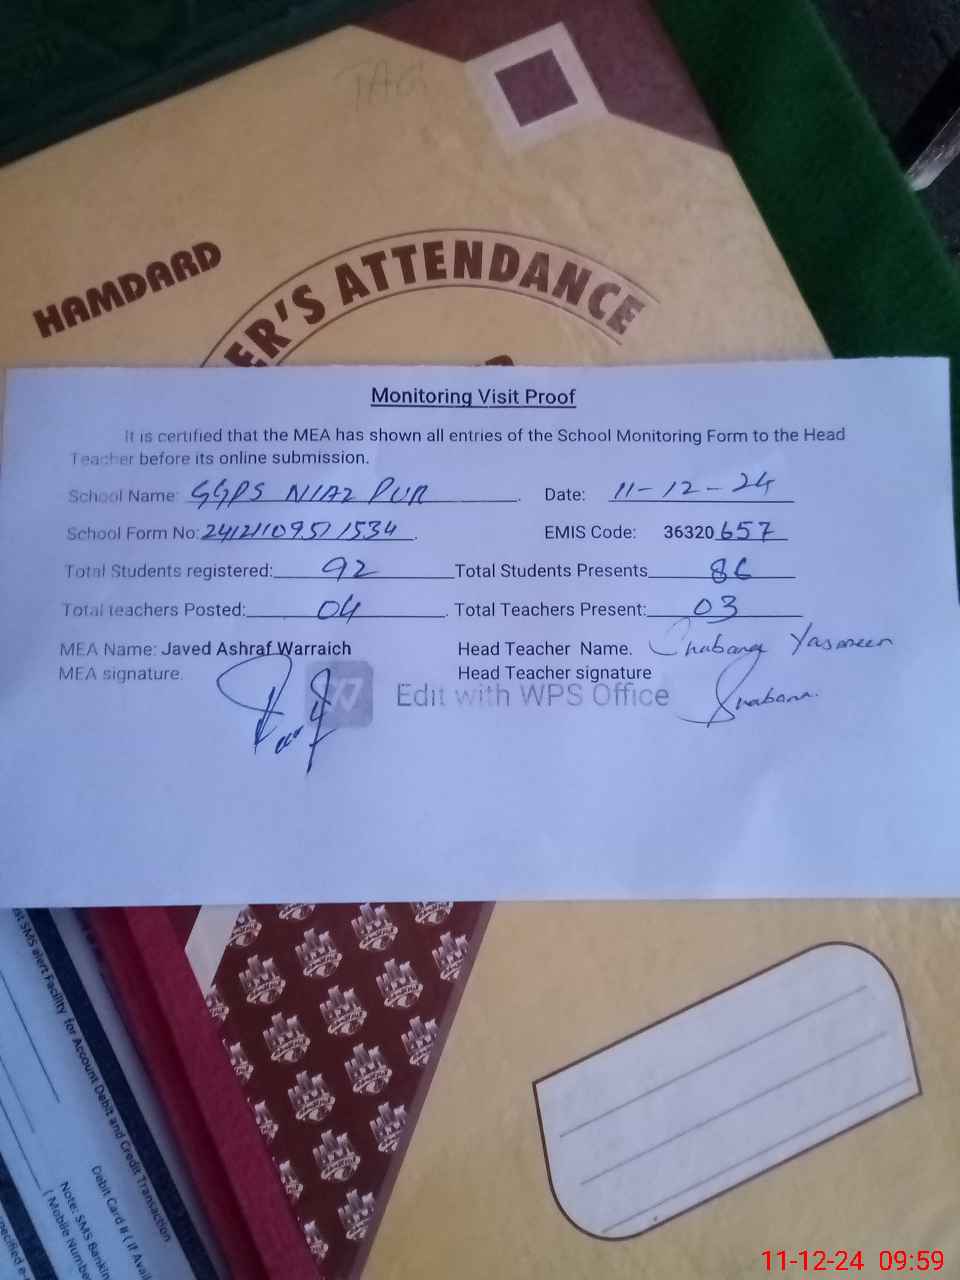 TAG
HAMDARD
ER'S ATTENDANCE
Monitoring Visit Proof
It is certified that the MEA has shown all entries of the School Monitoring Form to the Head
Teacher before its online submission.
School Name: GGPS NIAZ PUR Date: 11-12-24
School Form No: 24121109511534 EMIS Code: 36320657
Total Students registered: 92 Total Students Presents 86
Total teachers Posted: 04 Total Teachers Present: 03
MEA Name: Javed Ashraf Warraich Head Teacher Name. Shabana Yasmeen
MEA signature. Head Teacher signature
Edit with WPS Office
Shabana.
st SMS alert Facility for Account Debit and Credit Transaction
Debit Card # ( if Avai
Note: SMS Bankin
( Mobile Numbe
pecified e-
11-12-24 09:59